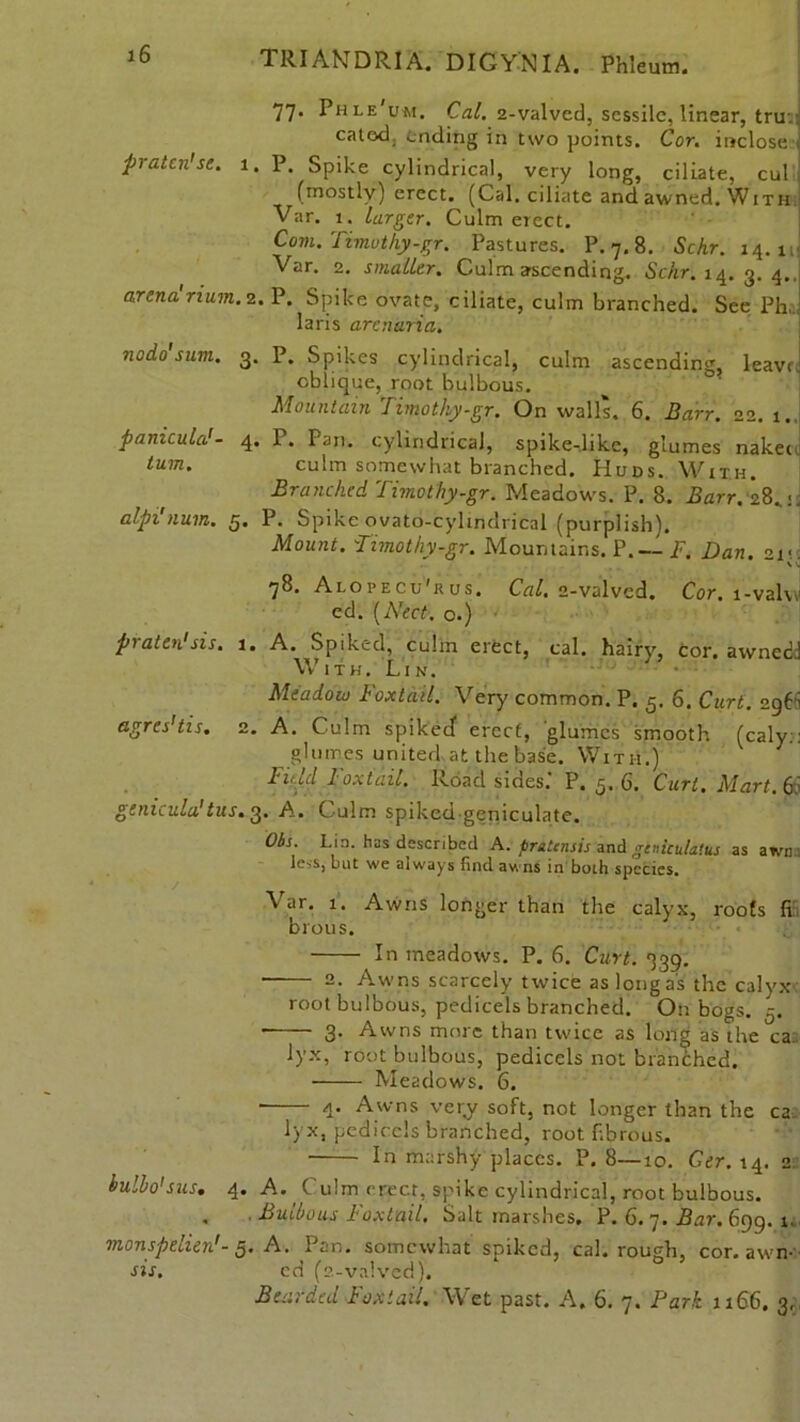 16 TRIANDRIA. DIGYNIA. Phleum.
77. PHLE'UM. Cal. 2-valved, sessile, linear, trun
cated, ending in two points. Cor. inclose
praten'se. 1. P. Spike cylindrical, very long, ciliate, cul
(mostly) erect. (Cal. ciliate and awned. WITH
Var. 1. larger. Culm erect.
Com. Timothy-gr. Pastures. P. 7. 8. Schr. 14. 1
Var. 2. smaller. Culm ascending. Schr. 14. 3. 4.
arena'rium. 2. P. Spike ovate, ciliate, culm branched. See Pha
laris arenaria.
nodo'sum. 3. P. Spikes cylindrical, culm ascending, leave
oblique, root bulbous.
Mountain Timothy-gr. On walls. 6. Barr. 22. 1.
panicula'- 4. P. Pan. cylindrical, spike-like, glumes naked
tum. culm somewhat branched. HUDS. WITH.
Branched Timothy-gr. Meadows. P. 8. Barr. 28.
alpi'num. 5. P. Spike ovato-cylindrical (purplish).
Mount. Timothy-gr. Mountains. P.— F. Dan. 21
78. ALOPECU'RUS. Cal. 2-valved. Cor. 1-valv
ed. (Nect. 0.)
praten'sis. 1. A. Spiked, culm erect, cal. hairy, cor. awned
WITH. LIN.
Meadow Foxtail. Very common. P. 5. 6. Curt. 296
agres'tis. 2. A. Culm spiked erect, glumes smooth (caly.
glumes united at the base. WITH.)
Field Foxtail. Road sides. P. 5. 6. Curt. Mart. 6
genicula'tus. 3. A. Culm spiked geniculate.
Obs. Lin. has described A. pratensis and geniculatus as awn
less, but we always find awns in both species.
Var. 1. Awns longer than the calyx, roots fi
brous.
—— In meadows. P. 6. Curt. 339.
—— 2. Awns scarcely twice as long as the calyx
root bulbous, pedicels branched. On bogs. 5.
—— 3. Awns more than twice as long as the ca
lyx, root bulbous, pedicels not branched.
—— Meadows. 6.
—— 4. Awns very soft, not longer than the ca
lyx, pedicels branched, root fibrous.
—— In marshy places. P. 8—10. Ger. 14. 2
bulbo'sus. 4. A. Culm erect, spike cylindrical, root bulbous.
Bulbous Foxtail. Salt marshes. P. 6. 7. Bar. 699. 1.
monspelien'- 5. A. Pan. somewhat spiked, cal. rough, cor. awn-
sis. ed (2-valved).
Bearded Foxtail. Wet past. A. 6. 7. Park 1166. 3.